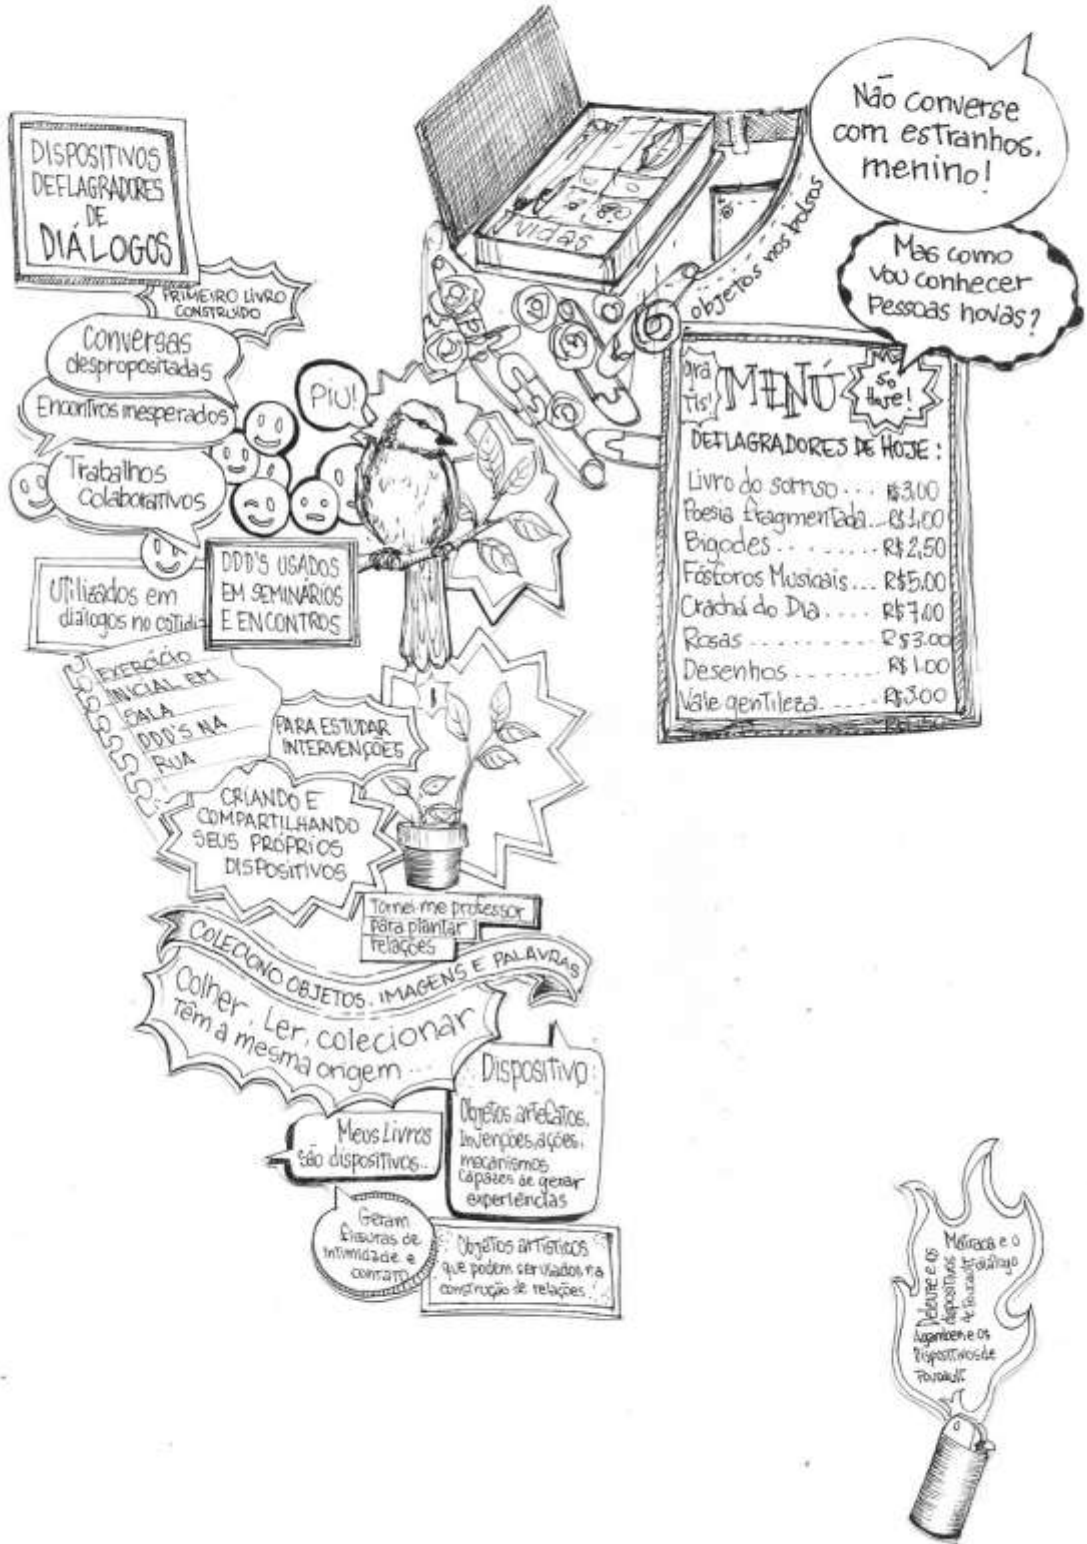 DISPOSITIVOS
DEFLAGRADORES
DE
DIÁLOGOS
PRIMEIRO LIVRO
CONSTRUÍDO
Conversas
despropositadas
Encontros inesperados
Trabalhos
Colaborativos
Utilizados em
diálogos no cotidi
DDD'S USADOS
EM SEMINÁRIOS
E ENCONTROS
PIU!
EXERCÍCIO
INICIAL EM
SALA
DDD'S NA
RUA
PARA ESTUDAR
INTERVENÇÕES
CRIANDO E
COMPARTILHANDO
SEUS PRÓPRIOS
DISPOSITIVOS
Tornei-me professor
para plantar
relações
COLECIONO OBJETOS, IMAGENS E PALAVRAS
Colher, Ler, colecionar
Têm a mesma origem...
Dispositivo:
Objetos artefatos,
Invenções, ações,
mecanismos
capazes de gerar
experiências
Meus Livros
são dispositivos...
Geram
fissuras de
intimidade e
contato
Objetos artísticos
que podem ser usados na
construção de relações
vidas
objetos nos bolsos
Não converse
com estranhos,
menino!
Mas como
vou conhecer
Pessoas novas?
gra
tis!
MENÚ
só
Hoje!
DEFLAGRADORES DE HOJE:
Livro do sorriso... R$3,00
Poesia fragmentada... R$1,00
Bigodes......... R$2,50
Fósforos Musicais... R$5,00
Crachá do Dia.... R$7,00
Rosas......... R$3,00
Desenhos...... R$1,00
Vale gentileza..... R$3,00
Deleuze e os
dispositivos
de Foucault
e o
diálogo
Agamben e os
Dispositivos de
Foucault